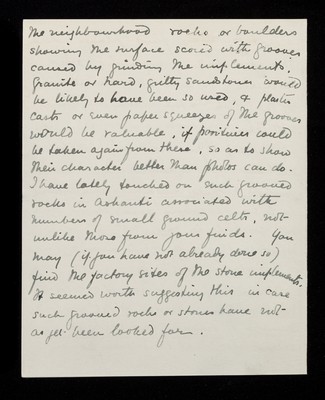 the neighbourhood rocks or boulders
showing the surface scored with grooves
caused by grinding the implements.
Granite or hard, gritty sandstones would
be likely to have been so used, & plaster
casts or even paper squeezes of the grooves
would be valuable, if positives could
be taken again from these, so as to show
their character better than photos can do.
I have lately touched on such grooved
rocks in Ashanti associated with
numbers of small ground celts, not
unlike those from your finds. You
may (if you have not already done so)
find the factory sites of the stone implements.
It seemed worth suggesting this in case
such grooved rocks or stones have not
as yet been looked for.